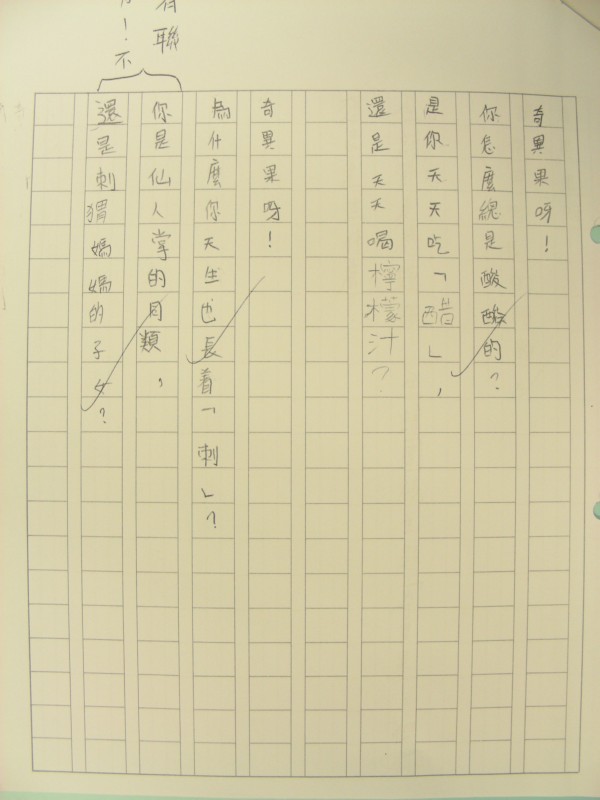 奇異果呀!
你怎麼總是酸酸的?
是你天天吃「醋」,
還是天天喝檸檬汁?
奇異果呀!
為什麼你天生也長着「刺」?
你是仙人掌的同類,
還是刺猬媽媽的子女?
聯
!不